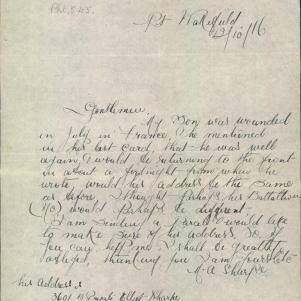 Pt Wakefield
29/10/16
Gentlemen
My Son was wounded
in July in France, he mentioned
in his last card, that he was well
again, & would be returning to the front
in about a fortnight from when he
wrote, would his address be the same
as before, I thought Perhaps his Battalion
No would Perhaps be different.
I am Sending a Parcel & would like
to make Sure of his address, So if
you can help me I shall be greatly
obliged, thanking you I am yours etc
M A Sharpe
his Address is
3601 Elliott Sharpe